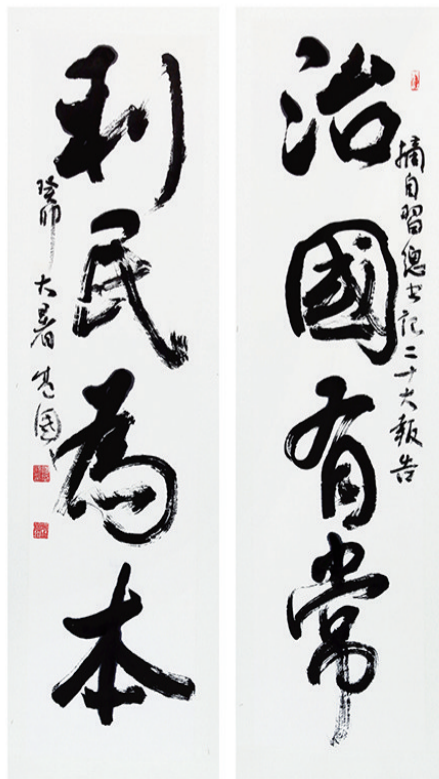 治國有常
摘自習總書記二十大報告
利民為本
癸卯大暑